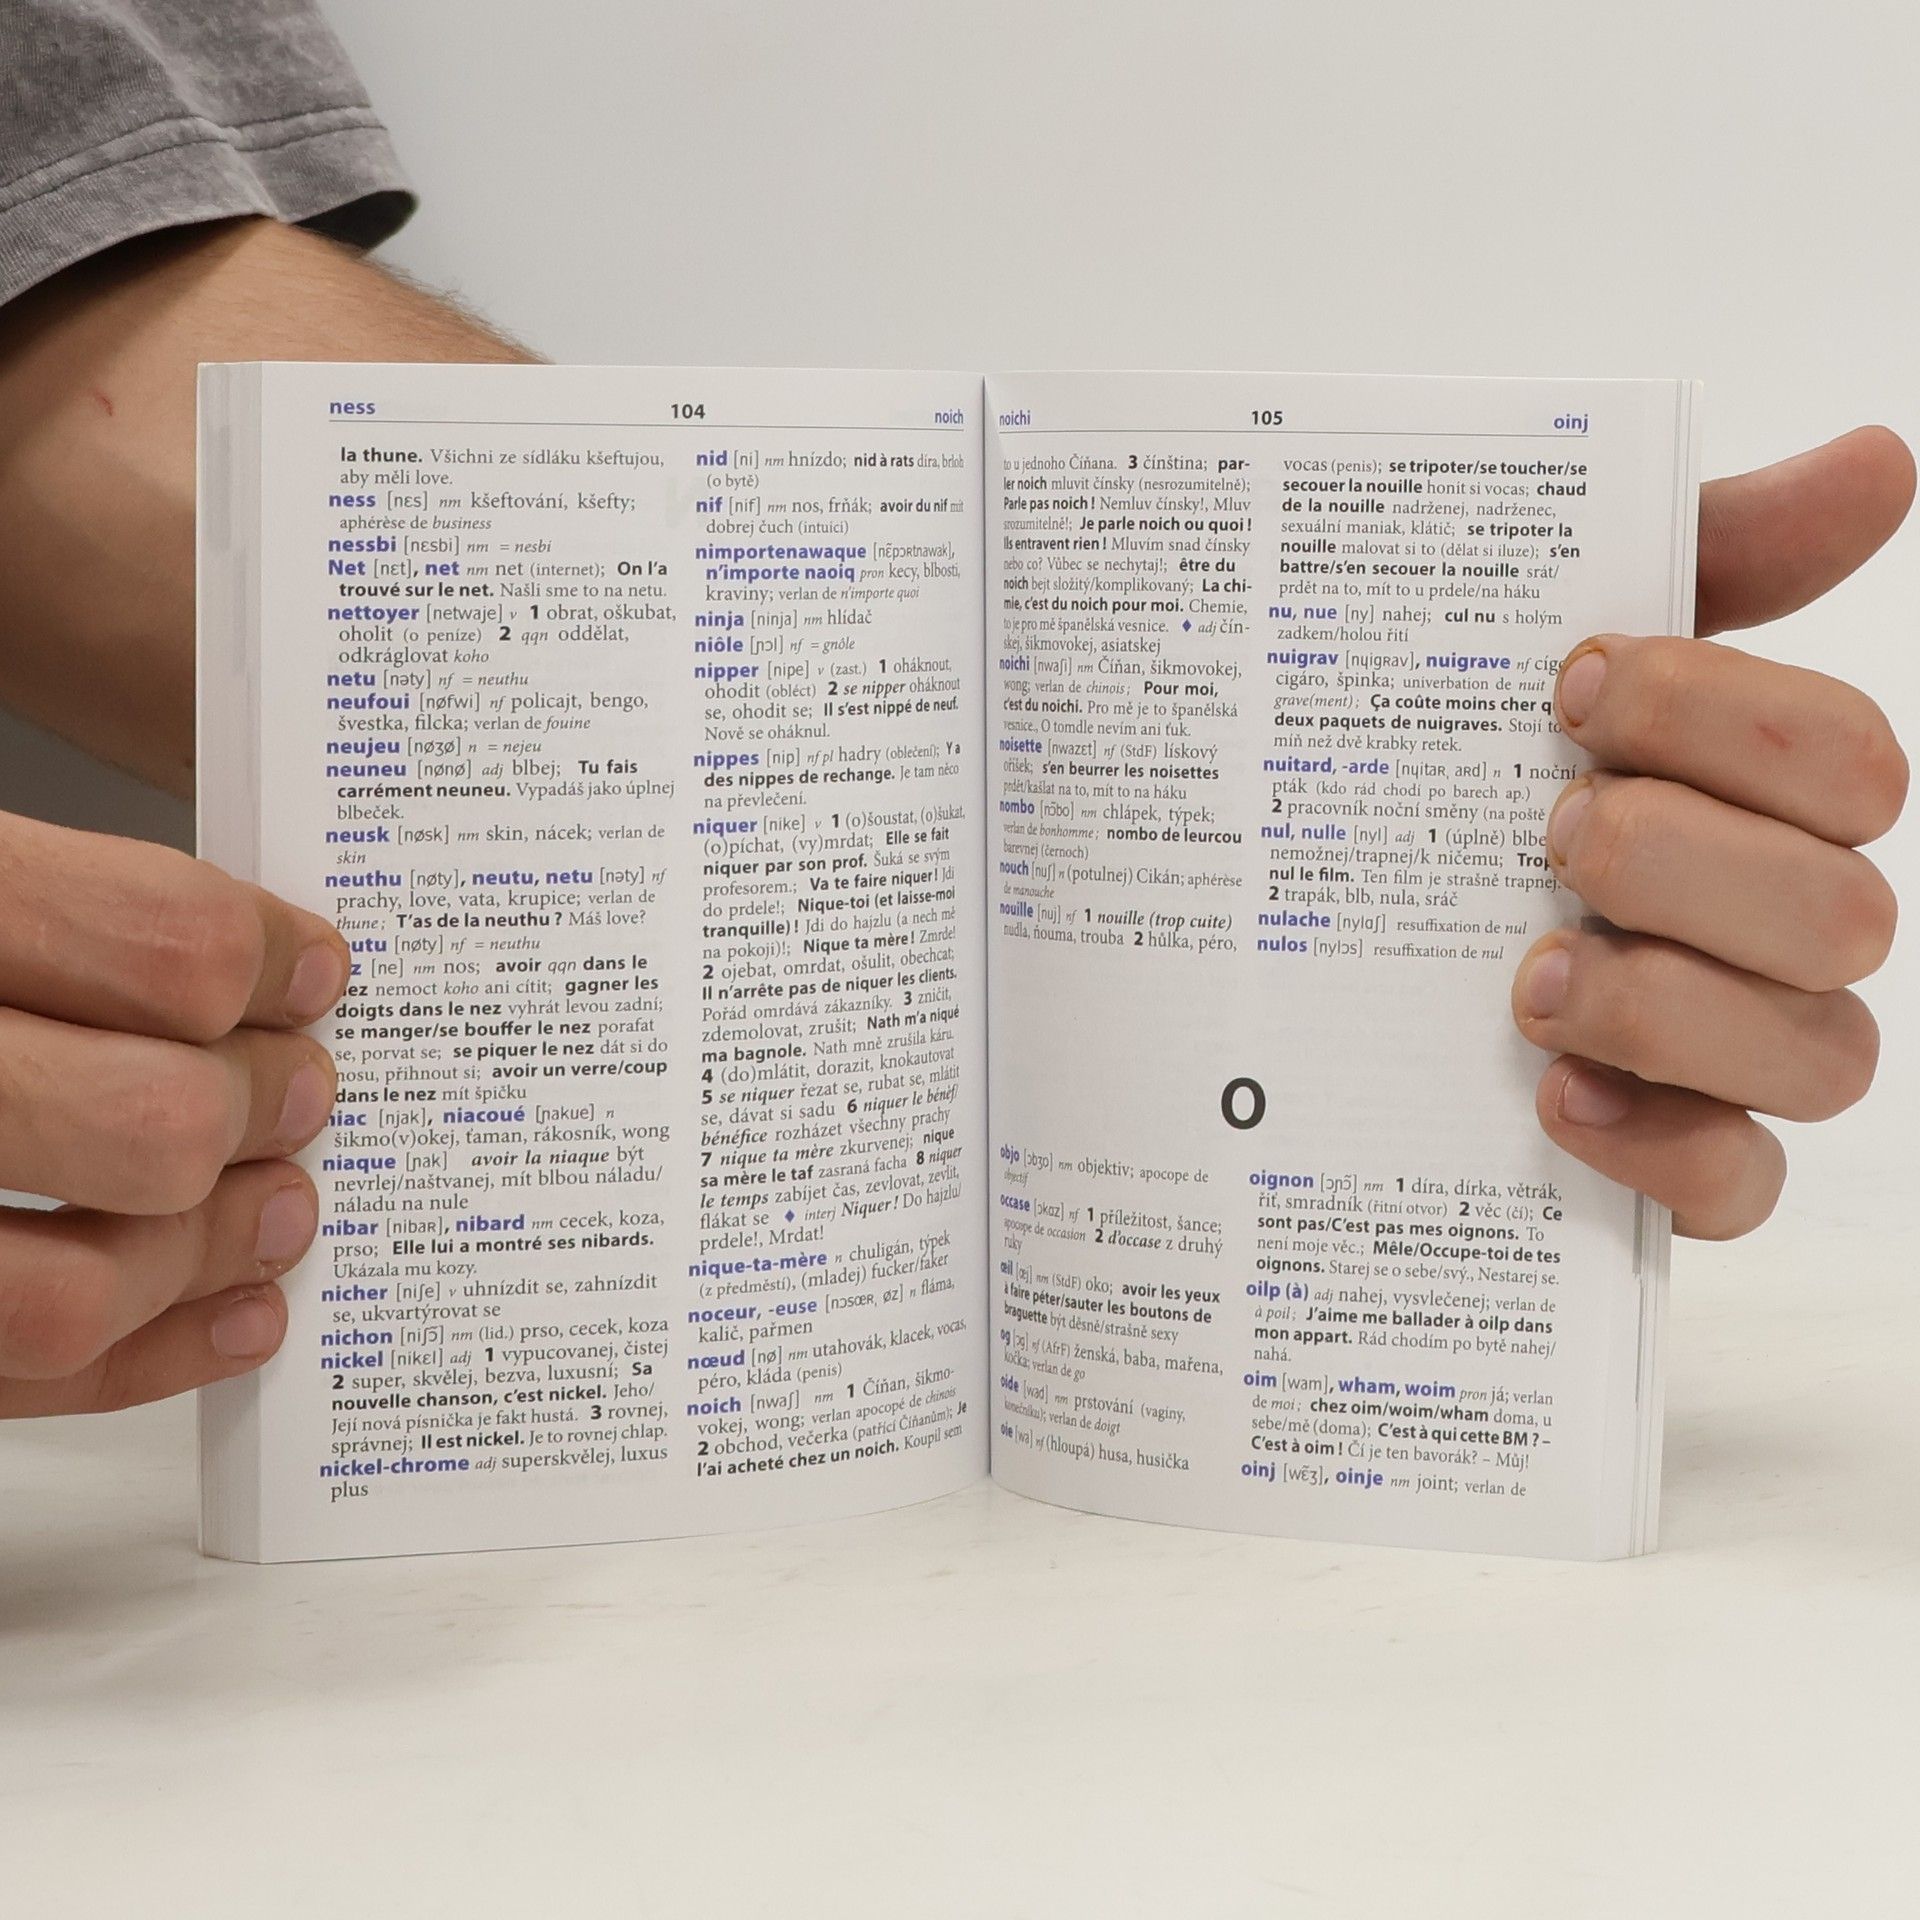 ness 104 noich
la thune. Všichni ze sídláku kšeftujou,
aby měli love.
ness [nɛs] nm kšeftování, kšefty;
aphérèse de business
nessbi [nɛsbi] nm = nesbi
Net [nɛt], net nm net (internet); On l'a
trouvé sur le net. Našli sme to na netu.
nettoyer [netwaje] v 1 obrat, oškubat,
oholit (o peníze) 2 qqn oddělat,
odkráglovat koho
netu [nəty] nf = neuthu
neufoui [nøfwi] nf policajt, bengo,
švestka, filcka; verlan de fouine
neujeu [nøʒø] n = nejeu
neuneu [nønø] adj blbej; Tu fais
carrément neuneu. Vypadáš jako úplnej
blbeček.
neusk [nøsk] nm skin, nácek; verlan de
skin
neuthu [nøty], neutu, netu [nəty] nf
prachy, love, vata, krupice; verlan de
thune; T'as de la neuthu ? Máš love?
utu [nøty] nf = neuthu
z [ne] nm nos; avoir qqn dans le
ez nemoct koho ani cítit; gagner les
doigts dans le nez vyhrát levou zadní;
se manger/se bouffer le nez porafat
se, porvat se; se piquer le nez dát si do
nosu, přihnout si; avoir un verre/coup
dans le nez mít špičku
niac [njak], niacoué [ɲakue] n
šikmo(v)okej, ťaman, rákosník, wong
niaque [ɲak] avoir la niaque být
nevrlej/naštvanej, mít blbou náladu/
náladu na nule
nibar [nibaʀ], nibard nm cecek, koza,
prso; Elle lui a montré ses nibards.
Ukázala mu kozy.
nicher [niʃe] v uhnízdit se, zahnízdit
se, ukvartýrovat se
nichon [niʃɔ̃] nm (lid.) prso, cecek, koza
nickel [nikɛl] adj 1 vypucovanej, čistej
2 super, skvělej, bezva, luxusní; Sa
nouvelle chanson, c'est nickel. Jeho/
Její nová písnička je fakt hustá. 3 rovnej,
správnej; Il est nickel. Je to rovnej chlap.
nickel-chrome adj superskvělej, luxus
plus
nid [ni] nm hnízdo; nid à rats díra, brloh
(o bytě)
nif [nif] nm nos, frňák; avoir du nif mít
dobrej čuch (intuici)
nimportenawaque [nɛ̃pɔʀtnawak],
n'importe naoiq pron kecy, blbosti,
kraviny; verlan de n'importe quoi
ninja [ninja] nm hlídač
niôle [ɲɔl] nf = gnôle
nipper [nipe] v (zast.) 1 oháknout,
ohodit (obléct) 2 se nipper oháknout
se, ohodit se; Il s'est nippé de neuf.
Nově se oháknul.
nippes [nip] nf pl hadry (oblečení); Y a
des nippes de rechange. Je tam něco
na převlečení.
niquer [nike] v 1 (o)šoustat, (o)šukat,
(o)píchat, (vy)mrdat; Elle se fait
niquer par son prof. Šuká se svým
profesorem.; Va te faire niquer! Jdi
do prdele!; Nique-toi (et laisse-moi
tranquille)! Jdi do hajzlu (a nech mě
na pokoji)!; Nique ta mère! Zmrde!
2 ojebat, omrdat, ošulit, obechcat;
Il n'arrête pas de niquer les clients.
Pořád omrdává zákazníky. 3 zničit,
zdemolovat, zrušit; Nath m'a niqué
ma bagnole. Nath mně zrušila káru.
4 (do)mlátit, dorazit, knokautovat
5 se niquer řezat se, rubat se, mlátit
se, dávat si sadu 6 niquer le bénéf/
bénéfice rozházet všechny prachy
7 nique ta mère zkurvenej; nique
sa mère le taf zasraná facha 8 niquer
le temps zabíjet čas, zevlovat, zevlit,
flákat se ♦ interj Niquer! Do hajzlu/
prdele!, Mrdat!
nique-ta-mère n chuligán, týpek
(z předměstí), (mladej) fucker/faker
noceur, -euse [nɔsœʀ, øz] n fláma,
kalič, pařmen
nœud [nø] nm utahovák, klacek, vocas,
péro, kláda (penis)
noich [nwaʃ] nm 1 Číňan, šikmo-
vokej, wong; verlan apocopé de chinois
2 obchod, večerka (patřící Číňanům); Je
l'ai acheté chez un noich. Koupil sem
noichi 105 oinj
to u jednoho Číňana. 3 čínština; par-
ler noich mluvit čínsky (nesrozumitelně);
Parle pas noich ! Nemluv čínsky!, Mluv
srozumitelně!; Je parle noich ou quoi !
Ils entravent rien ! Mluvím snad čínsky
nebo co? Vůbec se nechytaj!; être du
noich bejt složitý/komplikovaný; La chi-
mie, c'est du noich pour moi. Chemie,
to je pro mě španělská vesnice. ♦ adj čín-
skej, šikmovokej, asiatskej
noichi [nwaʃi] nm Číňan, šikmovokej,
wong; verlan de chinois; Pour moi,
c'est du noichi. Pro mě je to španělská
vesnice., O tomdle nevím ani ťuk.
noisette [nwazɛt] nf (StdF) lískový
oříšek; s'en beurrer les noisettes
prdět/kašlat na to, mít to na háku
nombo [nɔ̃bo] nm chlápek, týpek;
verlan de bonhomme; nombo de leurcou
barevnej (černoch)
nouch [nuʃ] n (potulnej) Cikán; aphérèse
de manouche
nouille [nuj] nf 1 nouille (trop cuite)
nudla, ňouma, trouba 2 hůlka, péro,
vocas (penis); se tripoter/se toucher/se
secouer la nouille honit si vocas; chaud
de la nouille nadrženej, nadrženec,
sexuální maniak, klátič; se tripoter la
nouille malovat si to (dělat si iluze); s'en
battre/s'en secouer la nouille srát/
prdět na to, mít to u prdele/na háku
nu, nue [ny] nahej; cul nu s holým
zadkem/holou řití
nuigrav [nɥigʀav], nuigrave nf cígo
cigáro, špinka; univerbation de nuit
grave(ment); Ça coûte moins cher q
deux paquets de nuigraves. Stojí to
míň než dvě krabky retek.
nuitard, -arde [nɥitaʀ, aʀd] n 1 noční
pták (kdo rád chodí po barech ap.)
2 pracovník noční směny (na poště
nul, nulle [nyl] adj 1 (úplně) blbe
nemožnej/trapnej/k ničemu; Trop
nul le film. Ten film je strašně trapnej.
2 trapák, blb, nula, sráč
nulache [nylaʃ] resuffixation de nul
nulos [nylɔs] resuffixation de nul
O
objo [ɔbʒo] nm objektiv; apocope de
objectif
occase [ɔkaz] nf 1 příležitost, šance;
apocope de occasion 2 d'occase z druhý
ruky
œil [œj] nm (StdF) oko; avoir les yeux
à faire péter/sauter les boutons de
braguette být děsně/strašně sexy
og [ɔg] nf (AfrF) ženská, baba, mařena,
kočka; verlan de go
oide [wad] nm prstování (vaginy,
konečníku); verlan de doigt
oie [wa] nf (hloupá) husa, husička
oignon [ɔɲɔ̃] nm 1 díra, dírka, větrák,
řiť, smradník (řitní otvor) 2 věc (čí); Ce
sont pas/C'est pas mes oignons. To
není moje věc.; Mêle/Occupe-toi de tes
oignons. Starej se o sebe/svý., Nestarej se.
oilp (à) adj nahej, vysvlečenej; verlan de
à poil; J'aime me ballader à oilp dans
mon appart. Rád chodím po bytě nahej/
nahá.
oim [wam], wham, woim pron já; verlan
de moi; chez oim/woim/wham doma, u
sebe/mě (doma); C'est à qui cette BM ? –
C'est à oim ! Čí je ten bavorák? – Můj!
oinj [wɛ̃ʒ], oinje nm joint; verlan de